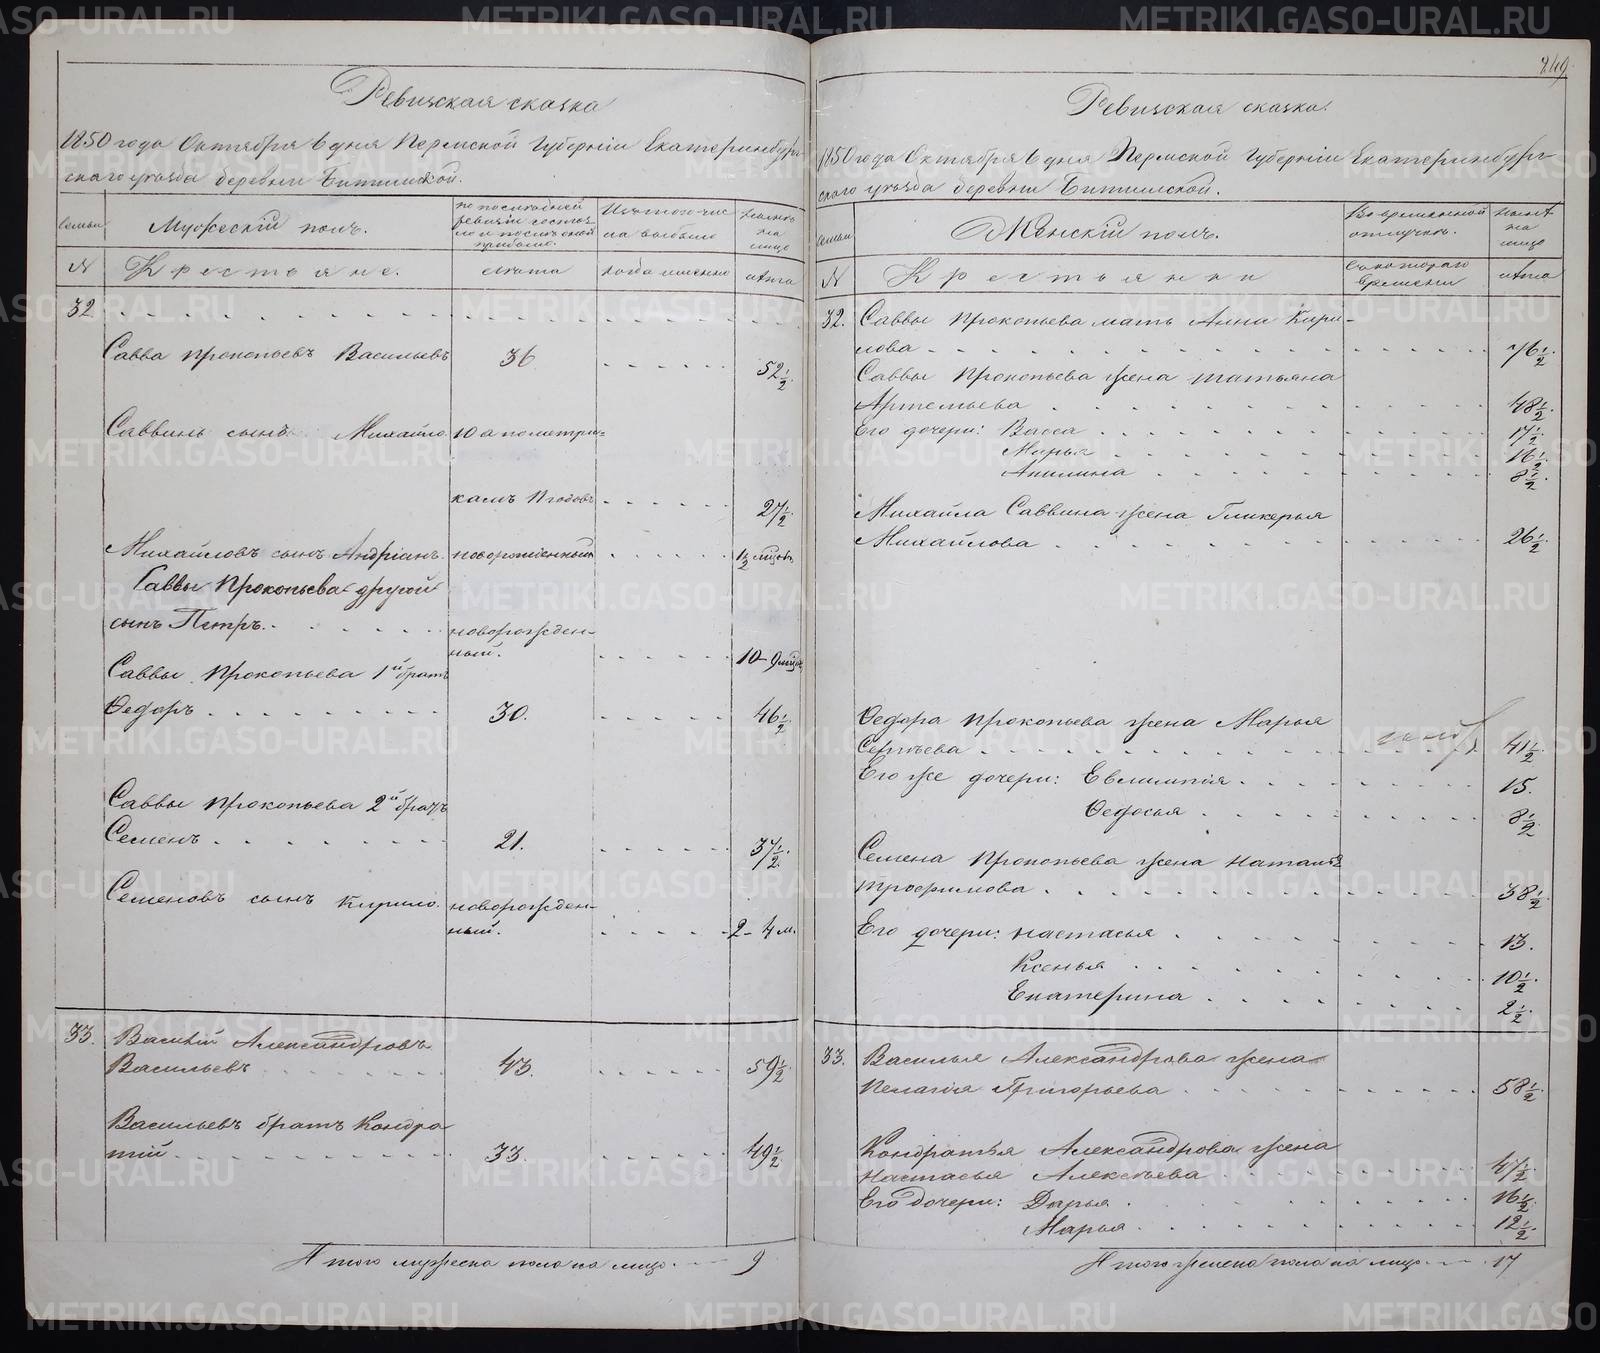 Ревизская сказка
1850 года Октября 6 дня Пермской Губернiи Екатеринбург-
скаго уезда деревни Битимской.
семьи
Мужескiй полъ.
по последней
ревизiи состоя-
ло и после оной
прибыло.
Изъ того чис-
ла выбыло
Ныне
на
лицо
N
Крестьяне.
лета
когда именно
лета
32
Савва Прокопьевъ Васильевъ 36 52 1/2
Саввинъ сынъ Михайло 10 а по метри-
камъ 11 годовъ 27 1/2
Михайловъ сынъ Андрiанъ новорожденный 1/2
Саввы Прокопьева другой
сынъ Петръ. новорожден-
ный. 10-9
Саввы Прокопьева 1й братъ
Федоръ 30. 46 1/2
Саввы Прокопьева 2й братъ
Семенъ 21. 37 1/2
Семеновъ сынъ Кирило новорожден-
ный. 2-4 м.
33. Василiй Александровъ
Васильевъ 43. 59 1/2
Васильевъ братъ Кондра
тiй 33. 49 1/2
Итого мужеска пола на лицо 9
249
Ревизская сказка.
1850 года Октября 6 дня Пермской Губернiи Екатеринбург-
скаго уезда деревни Битимской.
семьи
Женскiй полъ.
Во временной
отлучке.
Ныне
на
лицо
N
Крестьянки
Съ котораго
времени
лета
32. Саввы Прокопьева мать Анна Кири-
лова 76 1/2
Саввы Прокопьева жена Татьяна
Артемьева 48 1/2
Его дочери: Васса 17 1/2
Марья 16 1/2
Акилина 8 1/2
Михайла Саввина жена Гликерья
Михайлова 26 1/2
Федора Прокопьева жена Марья
Сергеева 41 1/2
Его же дочери: Евлампiя 15.
Федосья 8 1/2
Семена Прокопьева жена Наталья
Трофимова 38 1/2
Его дочери: Настасья 13.
Ксенья 10 1/2
Екатерина 2 1/2
33. Василья Александрова жена
Пелагiя Григорьева 58 1/2
Кондратья Александрова жена
Настасья Алексеева 47 1/2
Его дочери: Дарья 16 1/2
Марья 12 1/2
Итого женска пола на лицо 17
METRIKI.GASO-URAL.RU